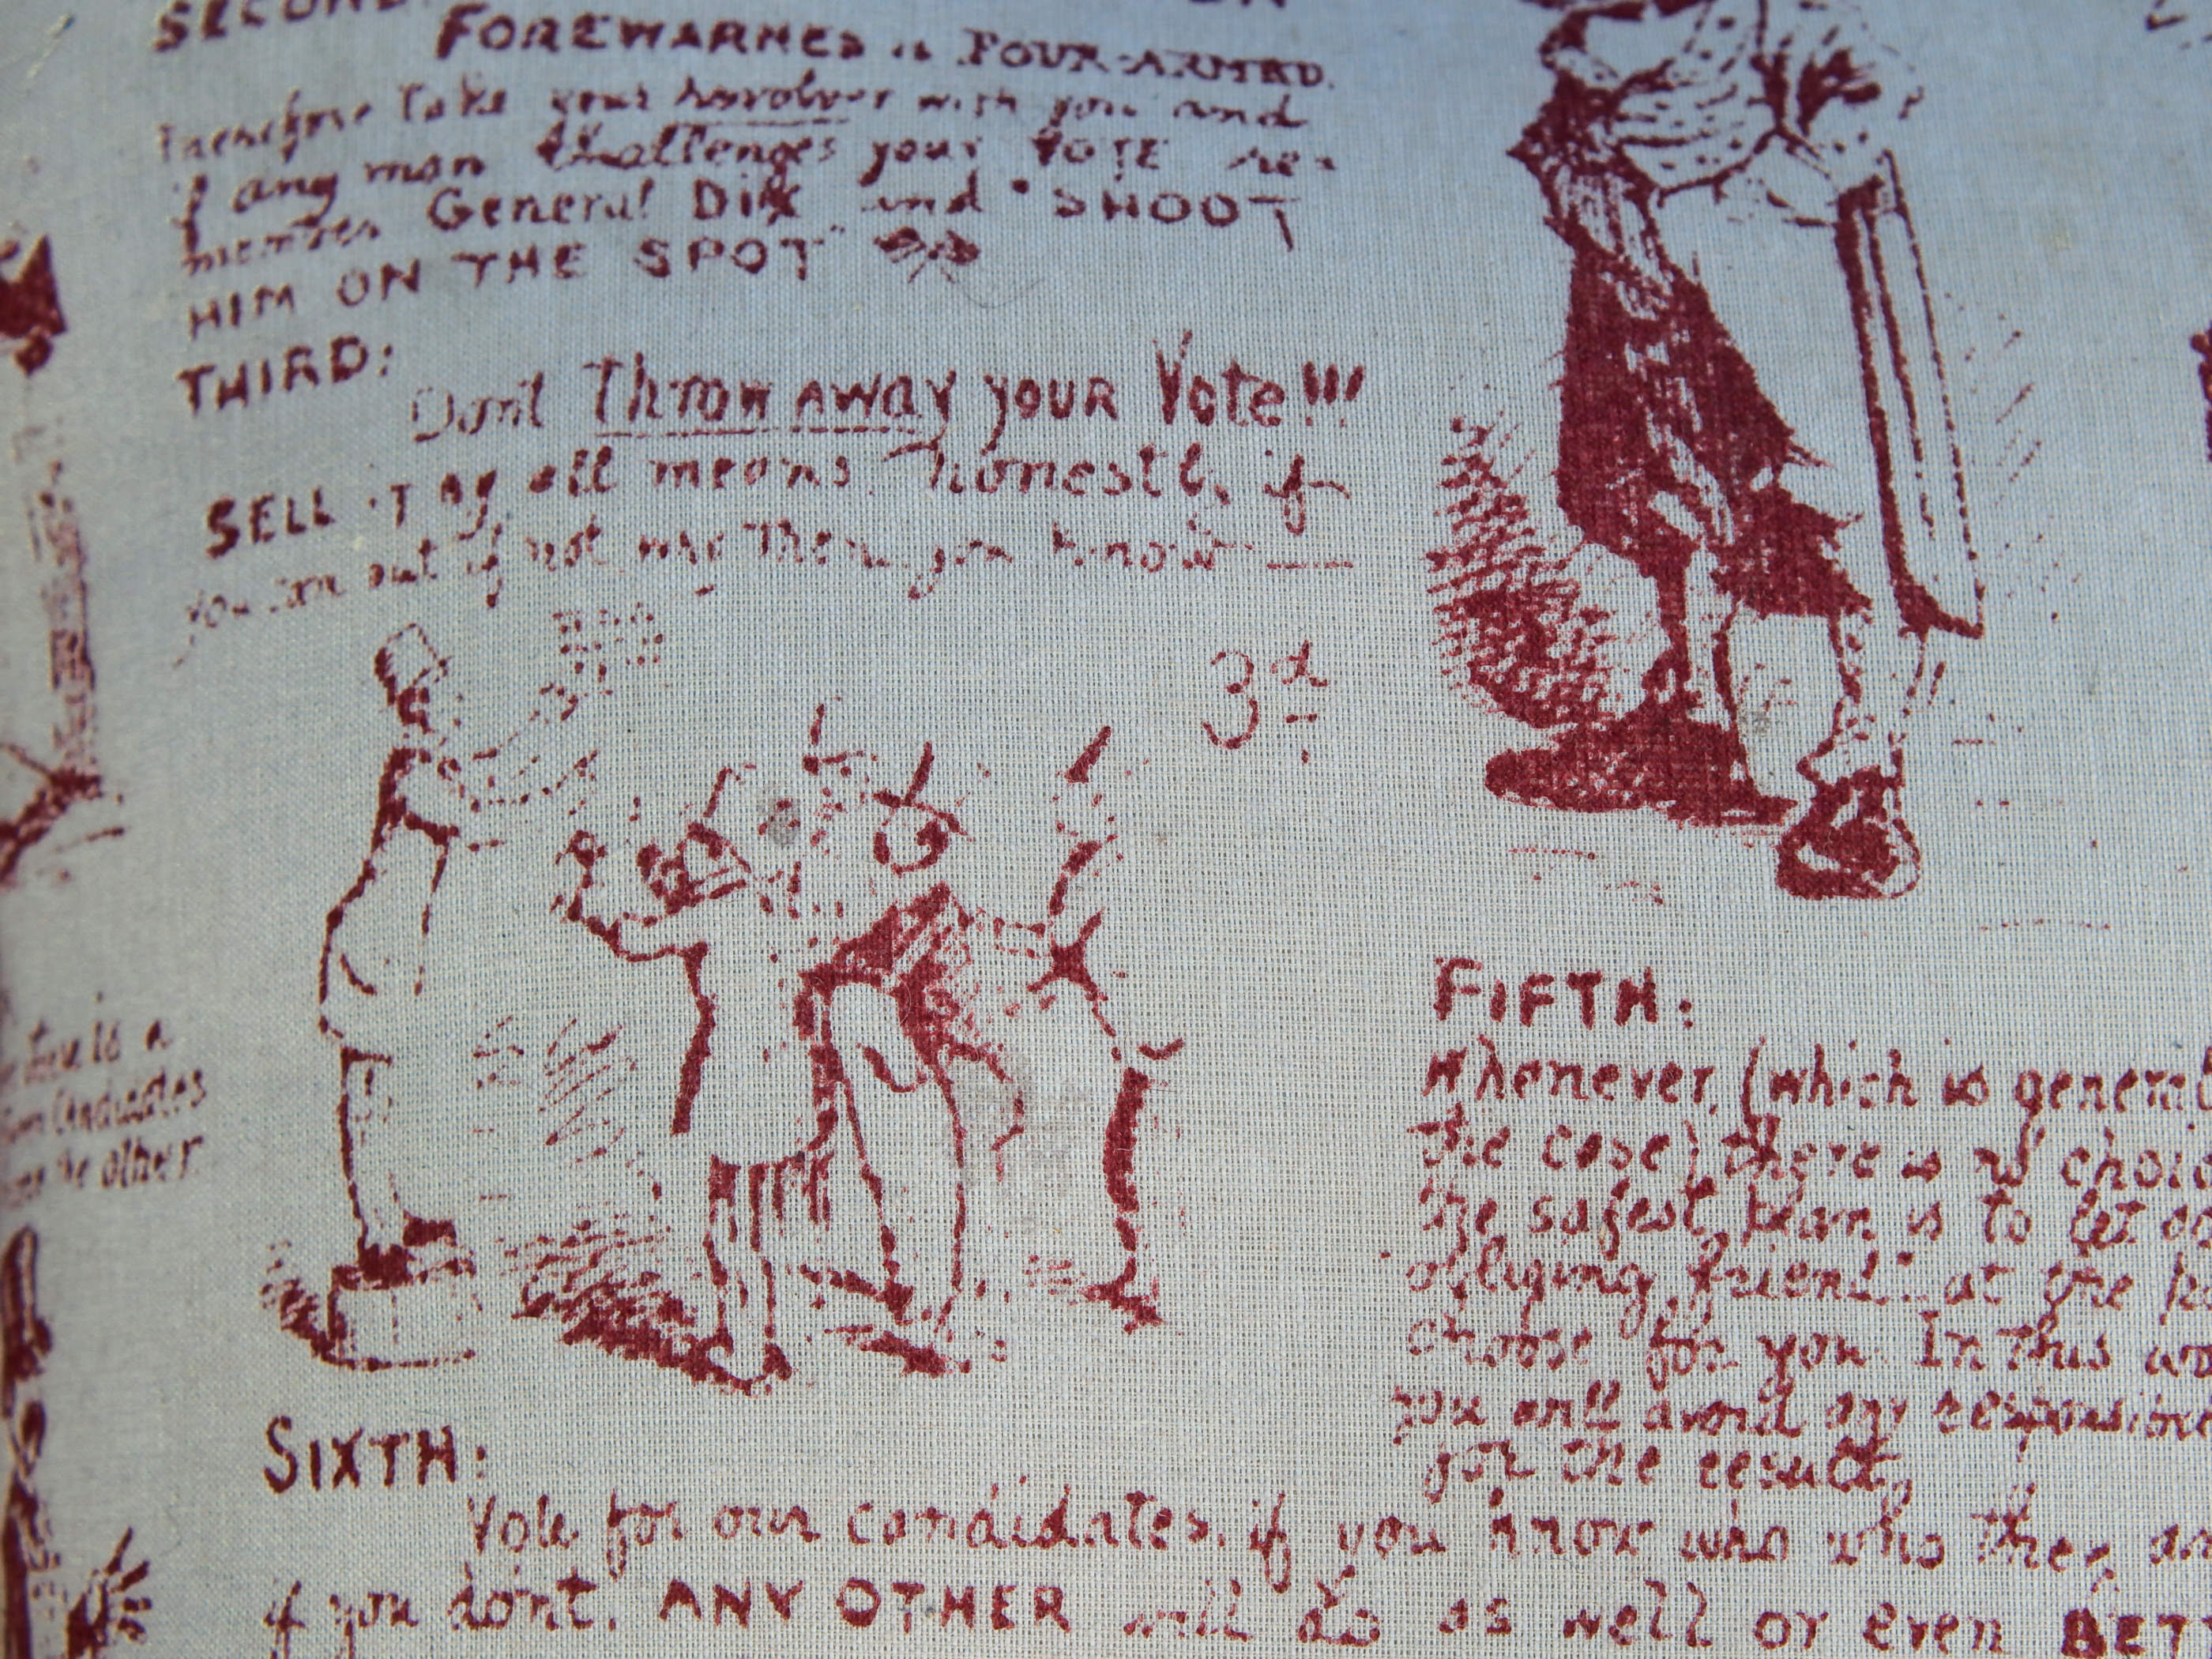 FOREWARNED is FOUR-ARMED.
take your revolver with you and
if any man challenges your VOTE re-
member General Dix and "SHOOT
HIM ON THE SPOT"
THIRD:
Don't Throw AWay YOUR Vote!!!
SELL IT by all means honestly if
you can but if not why then you know —
3d
there is a
Candidates
the other
FIFTH:
Whenever, (which is general
the case) there is no choice
the safest plan is to let
obliging friend at the
choose for you In this
you will avoid any
for the result,
SIXTH:
Vote for our candidates, if you know who who they
if you dont, ANY OTHER will do as well or even BET